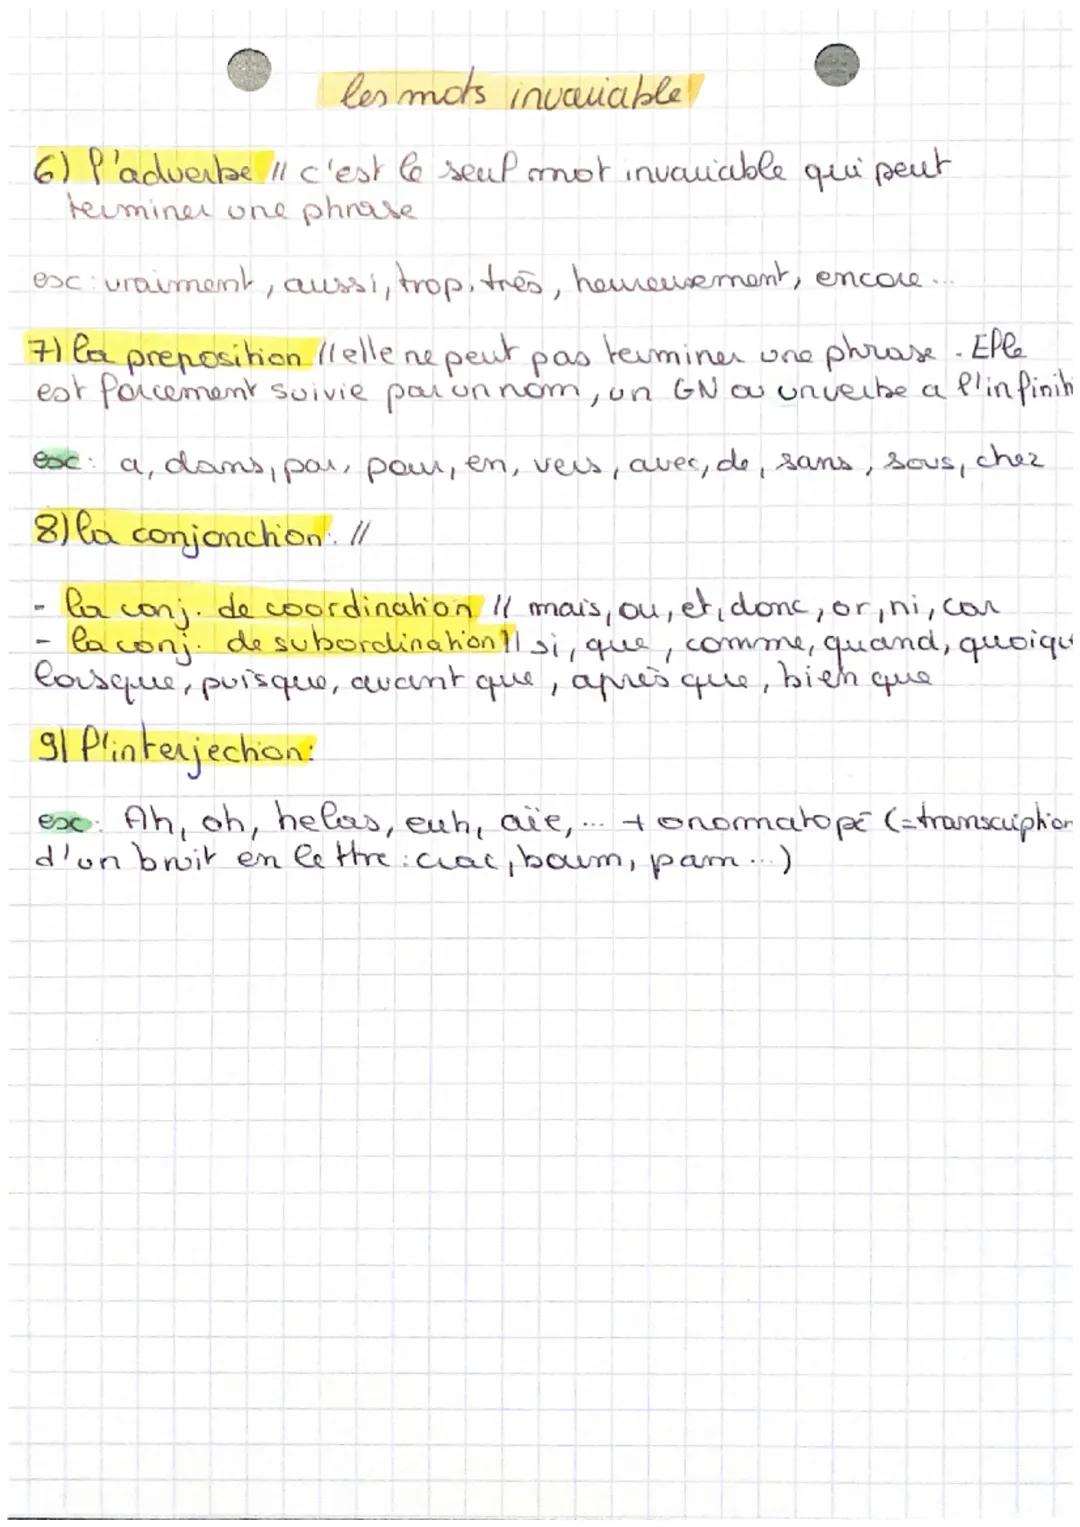 les mots invariable
6) l'adverbe // c'est le seul mot invariable qui peut
terminer une phrase
ex: vraiment, aussi, trop, très, heureusement, encore...
7) la preposition // elle ne peut pas terminer une phrase. Elle
est forcement suivie par un nom, un GN ou un verbe a l'infiniti
ex: a, dans, par, pour, en, vers, avec, de, sans, sous, chez
8) la conjonction: //
- la conj. de coordination // mais, ou, et, donc, or, ni, car
- la conj. de subordination // si, que, comme, quand, quoique
lorsque, puisque, avant que, après que, bien que
9) l'interjection:
ex: Ah, oh, helas, euh, aïe, ... + onomatopé (=transcription
d'un bruit en lettre: crac, boum, pam...)